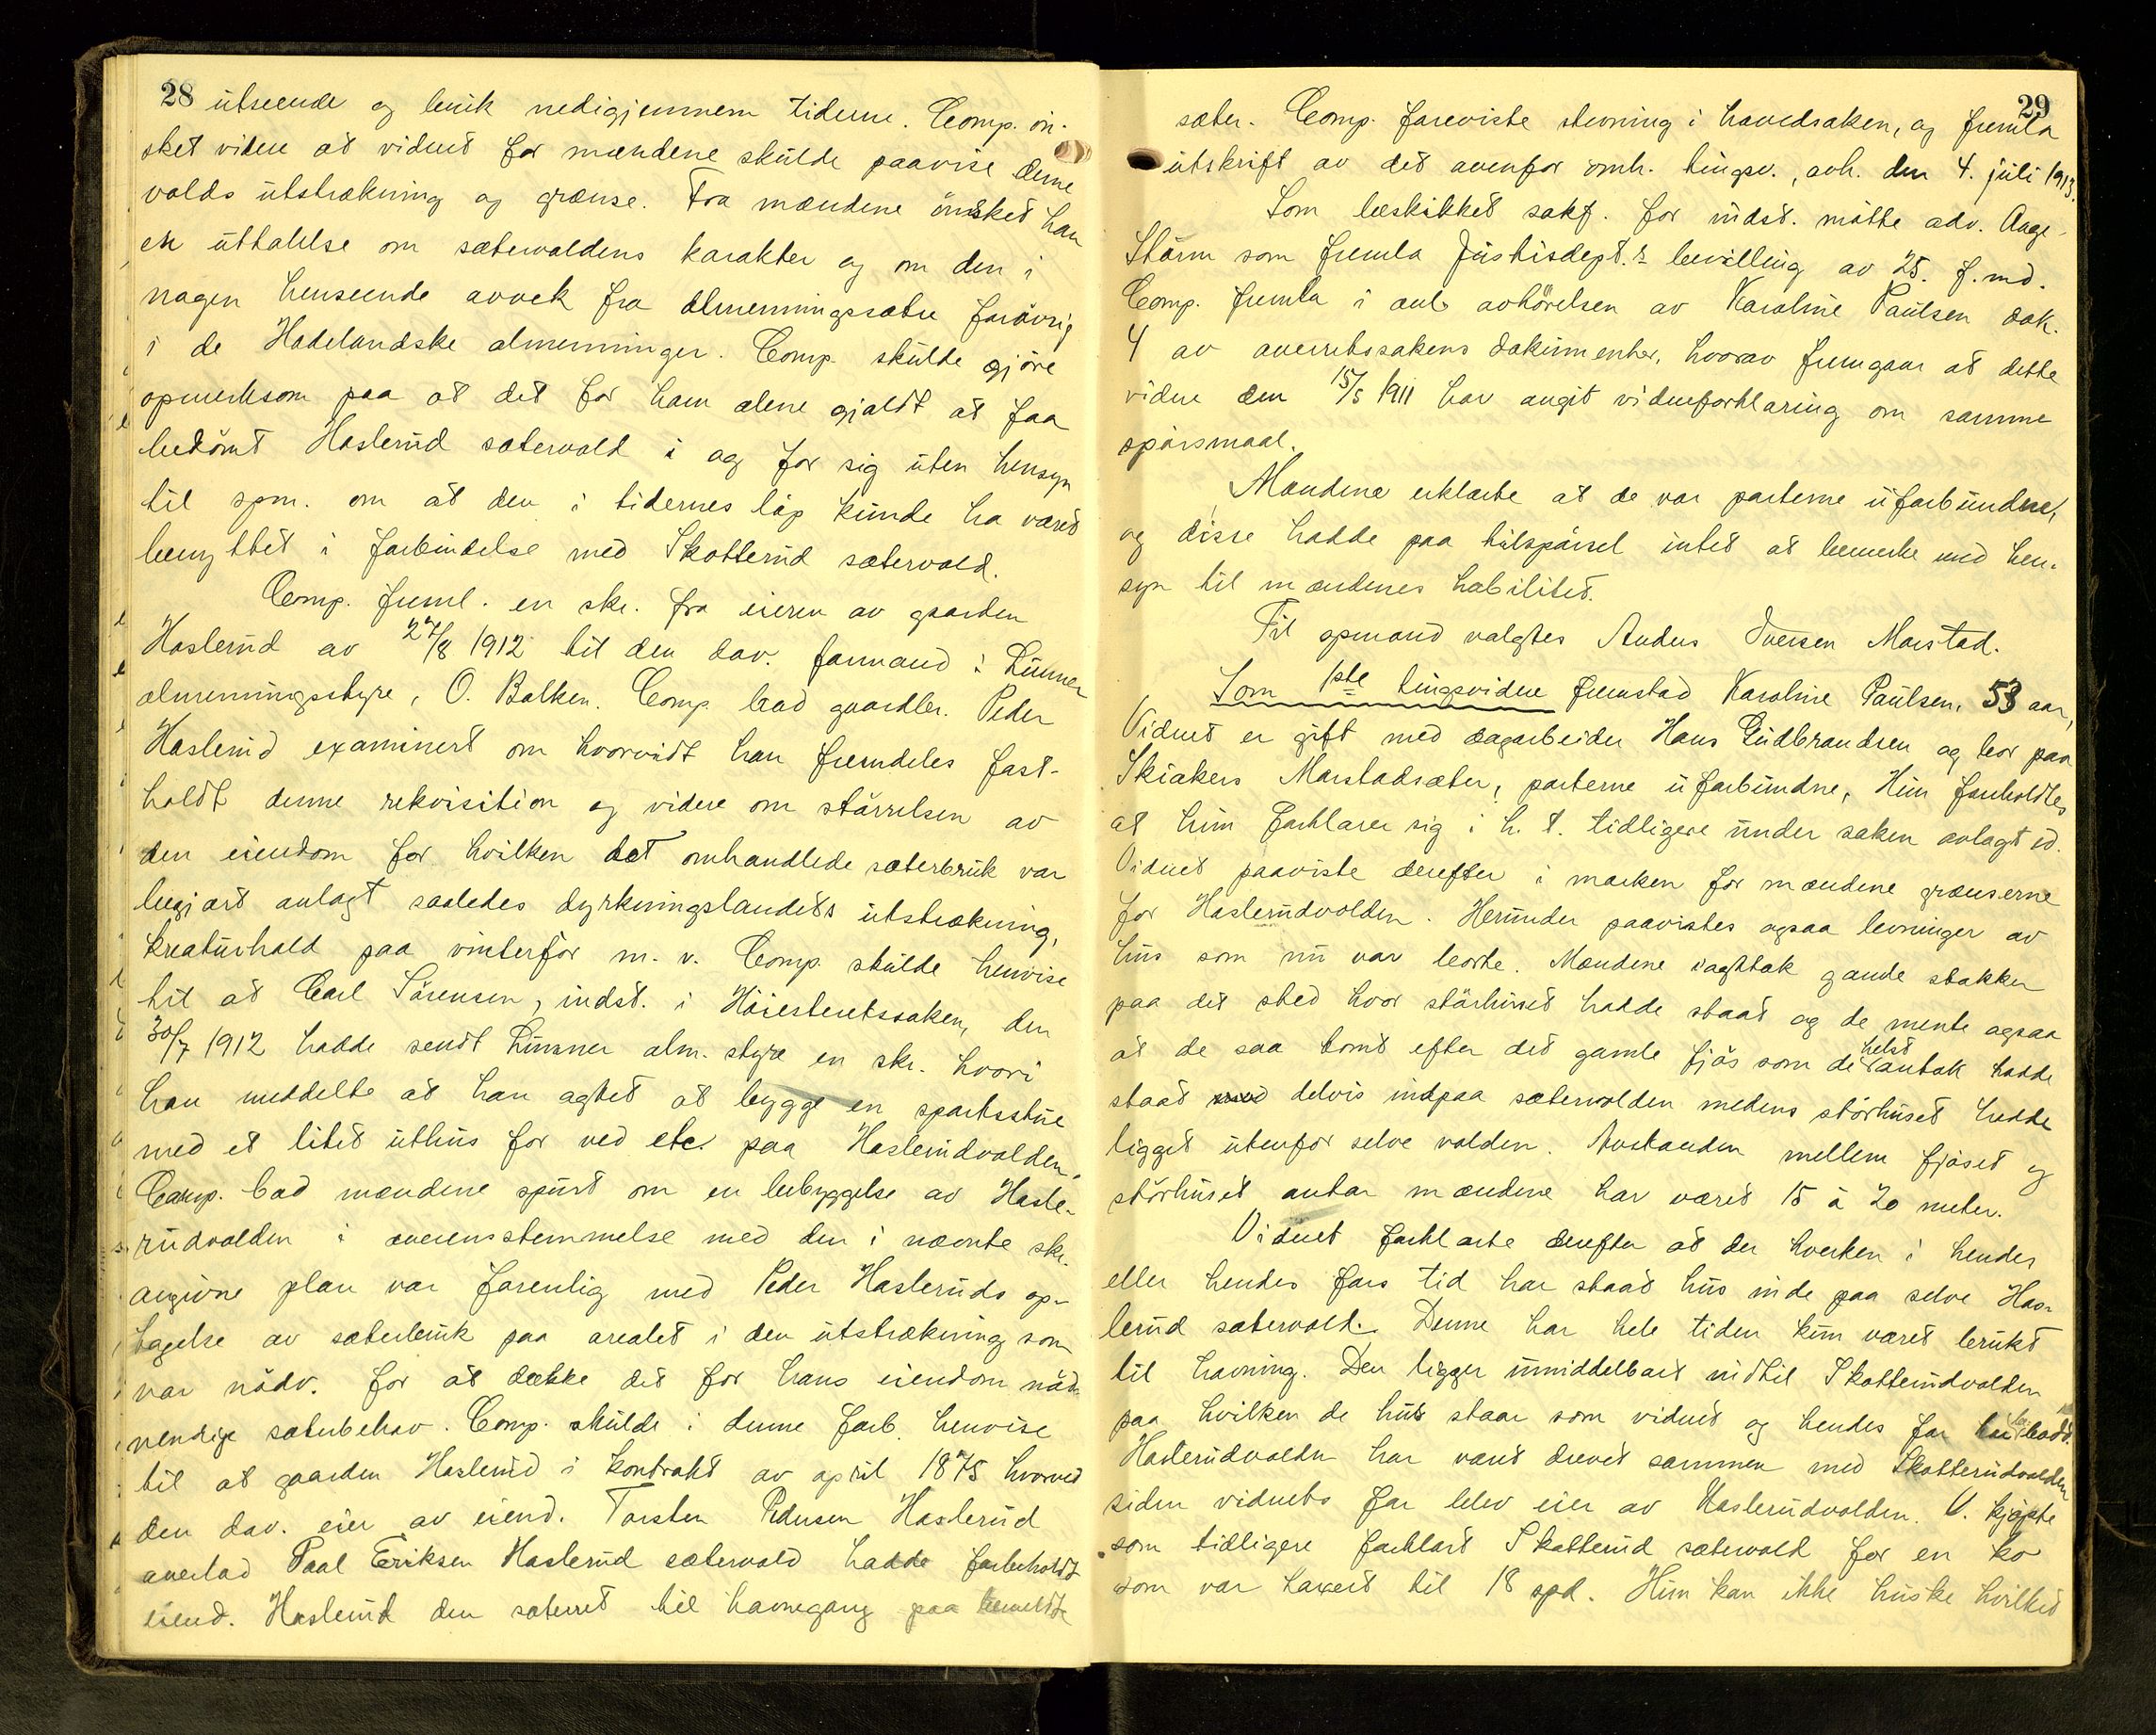 28
utseende og bruk nedigjennem tiderne. Comp. øn-
sket videre at vidnet for mændene skulde paavise denne
volds utstrækning og grænse. Fra mændene ønsket han
en uttalelse om sætervoldens karakter og om den i
nogen henseende avvek fra almenningssætre forøvrig
i de Hadelandske almenninger. Comp. skulde gjøre
opmerksom paa at det for ham alene gjaldt at faa
bedømt Haslerud sætervold i og for sig uten hensyn
til spm. om at den i tidernes løp kunde ha været
benyttet i forbindelse med Skotterud sætervold.
Comp. freml. en skr. fra eieren av gaarden
Haslerud av 27/8 1912 til den dav. formand i Lunner
almenningsstyre, O. Balken. Comp. bad gaardbr. Peder
Haslerud examinert om hvorvidt han fremdeles fast-
holdt denne rekvisition og videre om størrelsen av
den eiendom for hvilken det omhandlede sæterbruk var
begjært anlagt saaledes dyrkningslandets utstrækning,
kreaturhold paa vinterfòr m. v. Comp. skulde henvise
til at Carl Sørensen, indst. i Høiesteretssaken, den
30/7 1912 hadde sendt Lunner alm. styre en skr. hvori
han meddelte at han agtet at bygge en sportsstue
med et litet uthus for ved etc. paa Haslerudvolden.
Comp. bad mændene spurt om en bebyggelse av Hasle-
rudvolden i overensstemmelse med den i nævnte skr.
angivne plan var forenlig med Peder Hasleruds op-
tagelse av sæterbruk paa arealet i den utstrækning som
var nødv. for at dække det for hans eiendom nød-
vendige sæterbehov. Comp. skulde i denne forb. henvise
til at gaarden Haslerud i kontrakt av april 1875 hvorved
den dav. eier av eiend. Torsten Pedersen Haslerud
overlod Paal Eriksen Haslerud sætervold hadde forbeholdt
eiend. Haslerud den sæterret til havnegang paa bemeldte
29
sæter. Comp. foreviste stevning i hovedsaken, og fremla
utskrift av det ovenfor omh. tingsv., avh. den 4. juli 1913.
Som beskikket sakf. for indst. møtte adv. Aage
Storm som fremla Justisdept.s bevilling av 25. f. md.
Comp. fremla i anl. avhørelsen av Karoline Paulsen dok.
4 av overretssakens dokumenter, hvorav fremgaar at dette
vidne den 15/5 1911 har avgit vidneforklaring om samme
spørsmaal.
Mændene erklærte at de var parterne uforbundne,
og disse hadde paa tilspørsel intet at bemerke med hen-
syn til mændenes habilitet.
Til opmand valgtes Anders Iversen Morstad.
Som 1ste tingsvidne fremstod Karoline Paulsen, 53 aar,
Vidnet er gift med dagarbeider Hans Gudbrandsen og bor paa
Skiakers Morstadsæter, parterne uforbundne, Hun foreholdtes
at hun forklarer sig i h. t. tidligere under saken avlagt ed.
Vidnet paaviste derefter i marken for mændene grænserne
for Haslerudvolden. Herunder paavistes ogsaa levninger av
hus som nu var borte. Mændene iagttok gande stokker
paa det sted hvor størhuset hadde staat og de mente ogsaa
at de saa tomt efter det gamle fjøs som de helst antok hadde
staat delvis indpaa sætervolden medens størhuset hadde
ligget utenfor selve volden. Avstanden mellem fjøset og
størhuset antar mændene har været 15 à 20 meter.
Vidnet forklarte derefter at der hverken i hendes
eller hendes fars tid har staat hus inde paa selve Has-
lerud sætervold. Denne har hele tiden kun været brukt
til havning. Den ligger umiddelbart indtil Skotterudvolden
paa hvilken de hus staar som vidnet og hendes far har bodd.
Haslerudvolden har været drevet sammen med Skotterudvolden
siden vidnets far blev eier av Haslerudvolden. V. kjøpte
som tidligere forklart Skotterud sætervold for en ko
som var taxert til 18 spd. Hun kan ikke huske hvilket